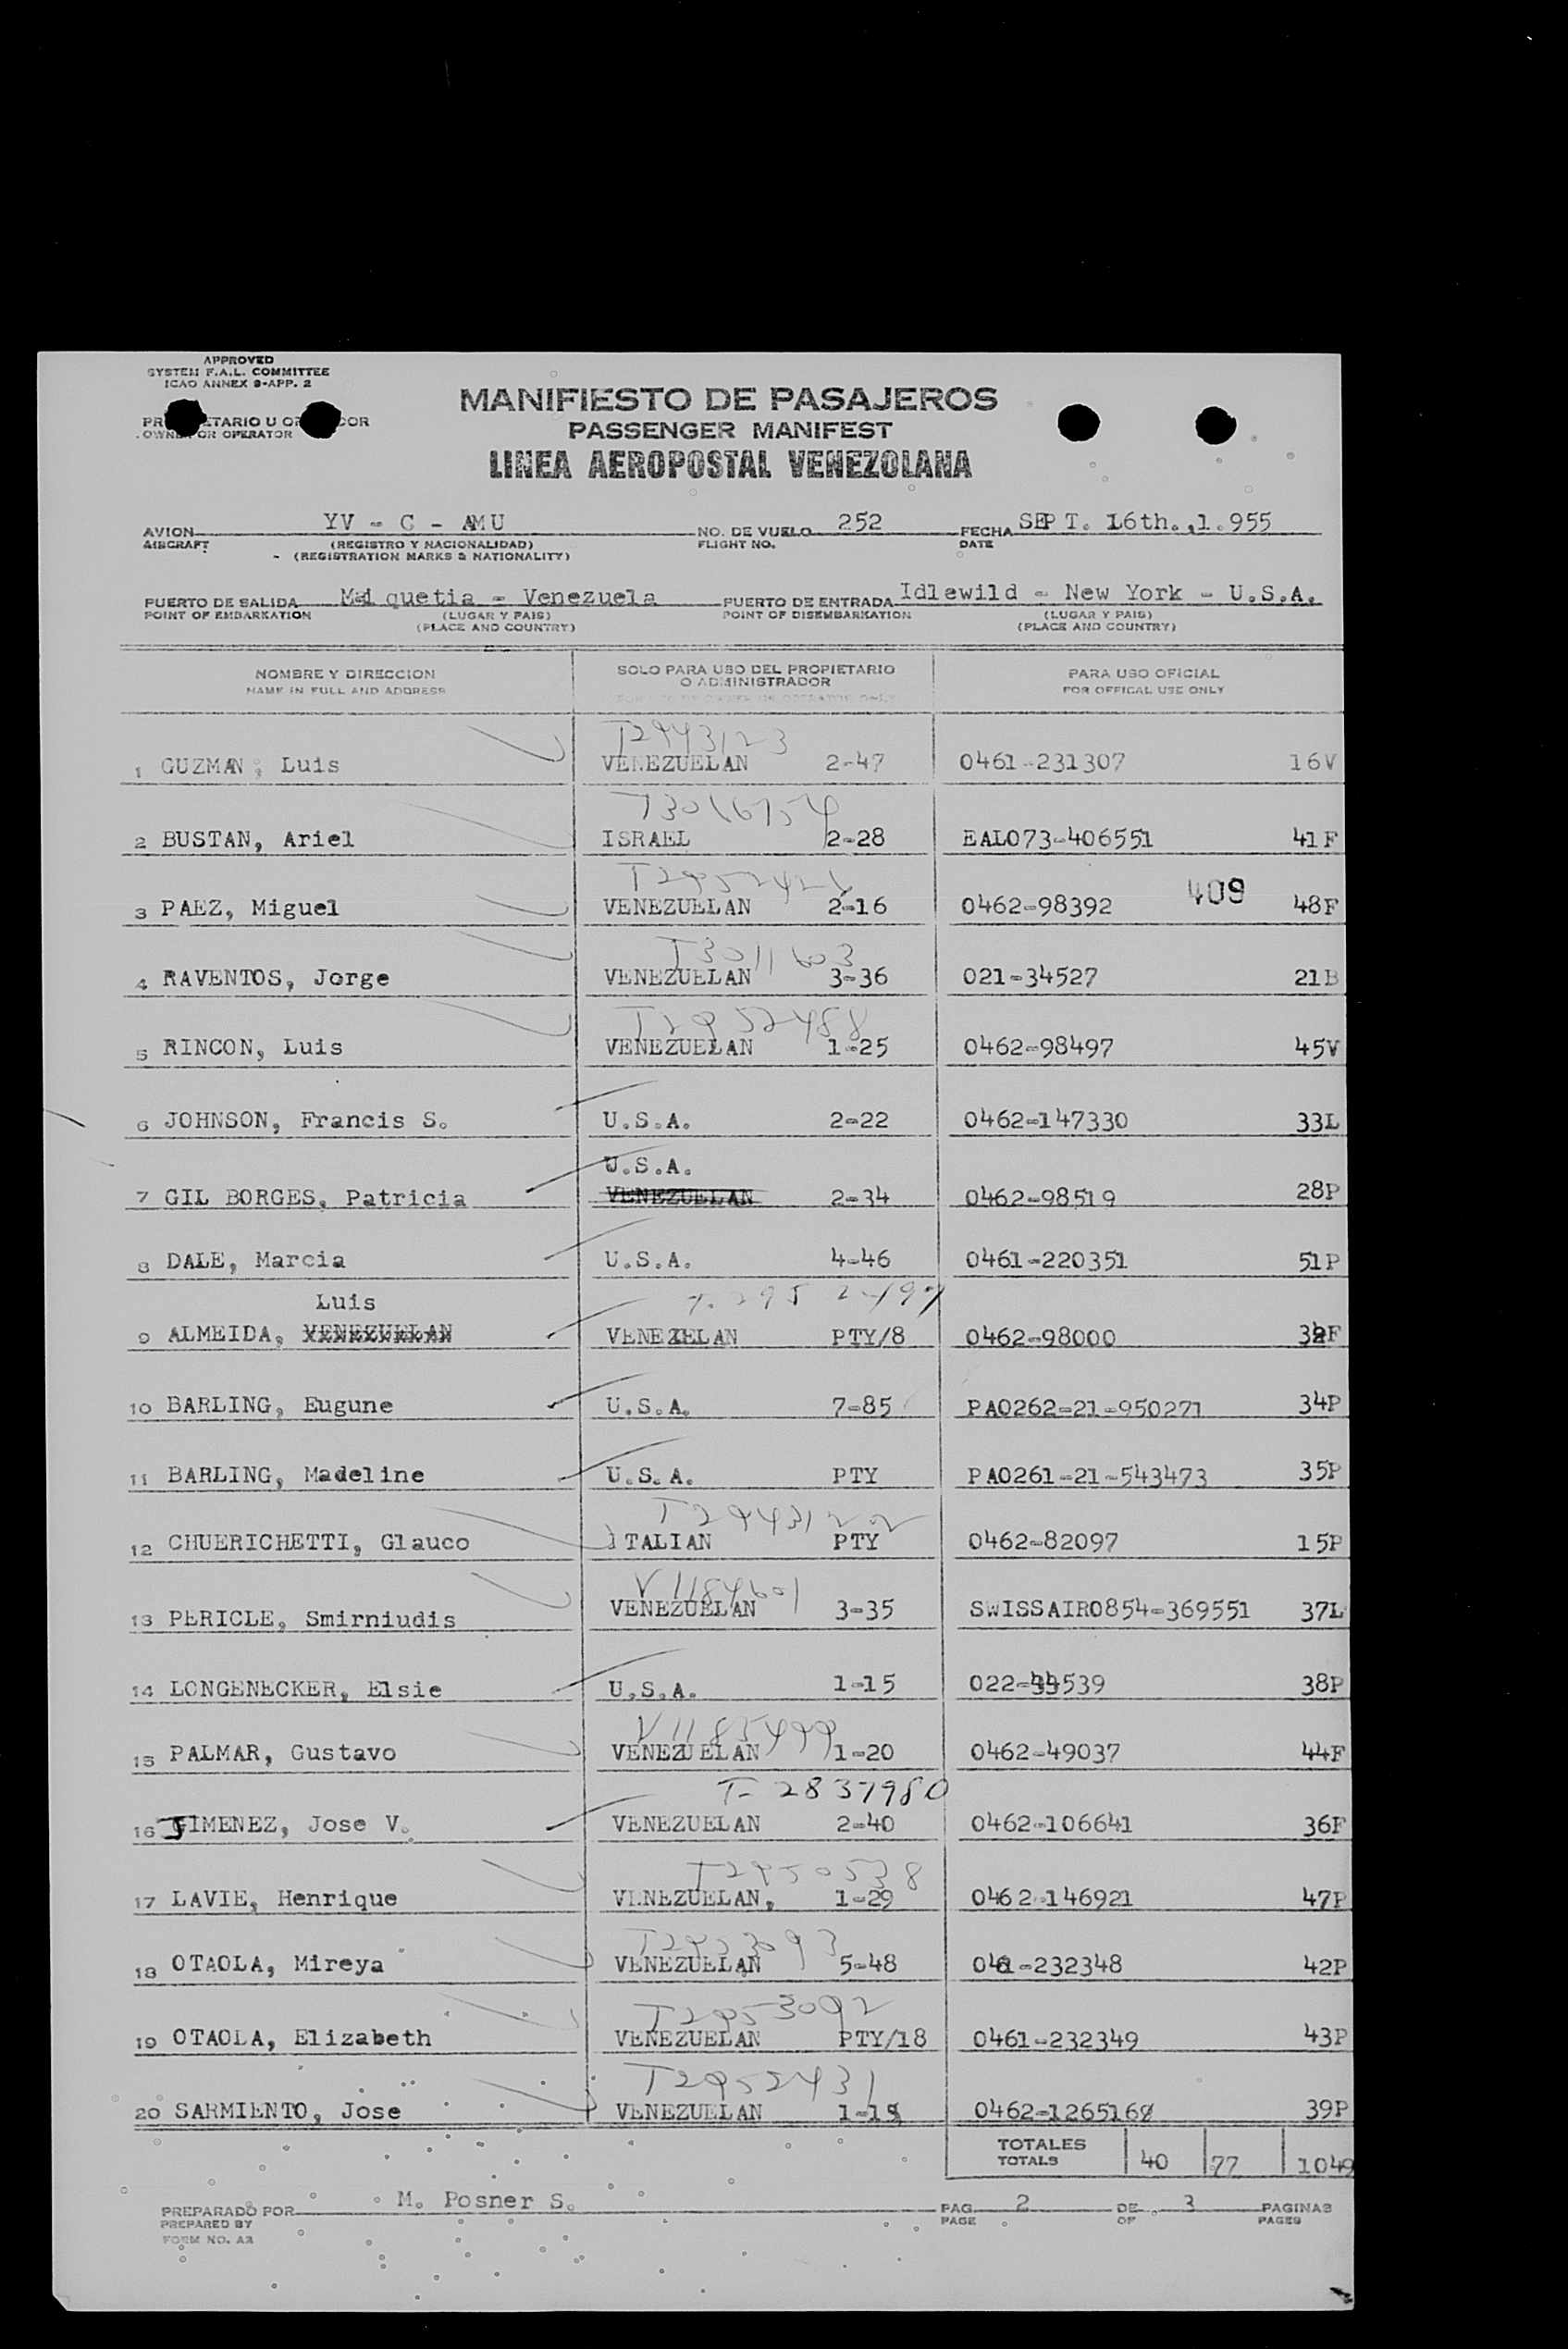 APPROVED
SYSTEM F.A.L. COMMITTEE
ICAO ANNEX 9-APP. 2
MANIFIESTO DE PASAJEROS
PASSENGER MANIFEST
OR OPERATOR
LINEA AEROPOSTAL VENEZOLANA
AVION YV - C - AMU NO. DE VUELO 252 FECHA SEPT. 16th.,1.955
AIRCRAFT (REGISTRO Y NACIONALIDAD) FLIGHT NO. DATE
(REGISTRATION MARKS & NATIONALITY)
PUERTO DE SALIDA Maiquetia - Venezuela PUERTO DE ENTRADA Idlewild - New York - U.S.A.
POINT OF EMBARKATION (LUGAR Y PAIS) POINT OF DISEMBARKATION (LUGAR Y PAIS)
(PLACE AND COUNTRY) (PLACE AND COUNTRY)
NOMBRE Y DIRECCION SOLO PARA USO DEL PROPIETARIO PARA USO OFICIAL
NAME IN FULL AND ADDRESS O ADMINISTRADOR FOR OFFICAL USE ONLY
T2943123
1 GUZMAN, Luis VENEZUELAN 2-47 0461-231307 16V
2 BUSTAN, Ariel ISRAEL 2-28 EAL073-406551 41F
409
3 PAEZ, Miguel VENEZUELAN 2-16 0462-98392 48F
T3011603
4 RAVENTOS, Jorge VENEZUELAN 3-36 021-34527 21B
T2952488
5 RINCON, Luis VENEZUELAN 1-25 0462-98497 45V
6 JOHNSON, Francis S. U.S.A. 2-22 0462-147330 33L
U.S.A.
7 GIL BORGES, Patricia VENEZUELAN 2-34 0462-98519 28P
8 DALE, Marcia U.S.A. 4-46 0461-220351 51P
Luis
9 ALMEIDA, VENEZUELAN VENEZELAN PTY/8 0462-98000
10 BARLING, Eugune U.S.A. 7-85 PA0262-21-950271 34P
11 BARLING, Madeline U.S.A. PTY PA0261-21-543473 35P
T2943122
12 CHUERICHETTI, Glauco ITALIAN PTY 0462-82097 15P
V1184601
13 PERICLE, Smirniudis VENEZUELAN 3-35 SWISSAIR0854-369551 37L
14 LONGENECKER, Elsie U.S.A. 1-15 022-44539 38P
V1185499
15 PALMAR, Gustavo VENEZUELAN 1-20 0462-49037 44F
T-2837980
16 JIMENEZ, Jose V. VENEZUELAN 2-40 0462-106641 36F
T2950538
17 LAVIE, Henrique VENEZUELAN, 1-29 0462-146921 47P
T2953093
18 OTAOLA, Mireya VENEZUELAN 5-48 42P
T2953092
19 OTAOLA, Elizabeth VENEZUELAN PTY/18 0461-232349 43P
T2952431
20 SARMIENTO, Jose VENEZUELAN 39P
TOTALES
TOTALS 40 77 1049
PREPARADO POR M. Posner S. PAG. 2 DE 3 PAGINAS
PREPARED BY PAGE OF PAGES
FORM NO. A3